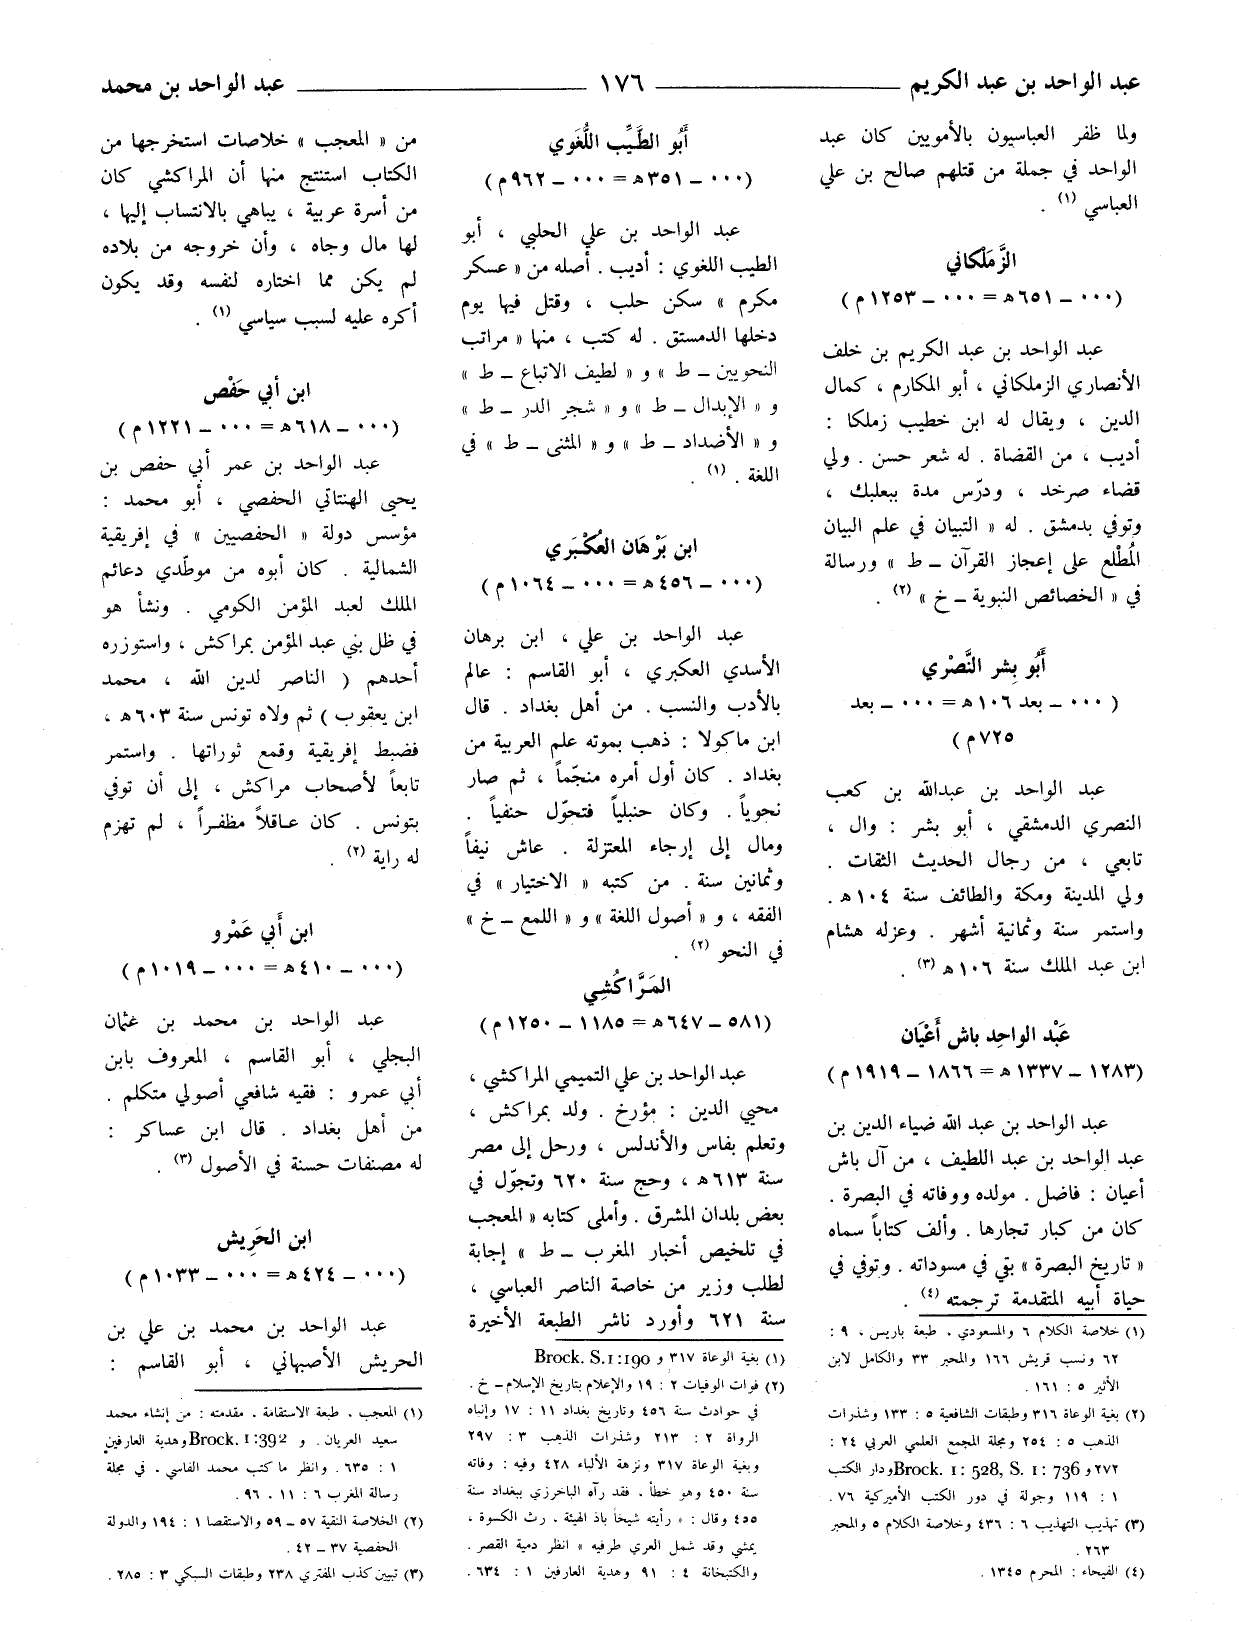 عبد الواحد بن عبد الكريم ١٧٦ عبد الواحد بن محمد
ولما ظفر العباسيون بالأمويين كان عبد
الواحد في جملة من قتلهم صالح بن علي
العباسي (١) .
الزَّمَلْكاني
(٠٠٠ ــ ٦٥١ هـ = ٠٠٠ ــ ١٢٥٣ م)
عبد الواحد بن عبد الكريم بن خلف
الأنصاري الزملكاني ، أبو المكارم ، كمال
الدين ، ويقال له ابن خطيب زملكا :
أديب ، من القضاة . له شعر حسن . ولي
قضاء صرخد ، ودرّس مدة ببعلبك ،
وتوفي بدمشق . له « التبيان في علم البيان
المُطْلع على إعجاز القرآن ــ ط » ورسالة
في « الخصائص النبوية ــ خ » (٢) .
أَبُو بِشر النَّصْري
( ٠٠٠ ــ بعد ١٠٦ هـ = ٠٠٠ ــ بعد
٧٢٥ م )
عبد الواحد بن عبدالله بن كعب
النصري الدمشقي ، أبو بشر : وال ،
تابعي ، من رجال الحديث الثقات .
ولي المدينة ومكة والطائف سنة ١٠٤ هـ .
واستمر سنة وثمانية أشهر . وعزله هشام
ابن عبد الملك سنة ١٠٦ هـ (٣) .
عَبْد الواحِد باش أَعْيَان
(١٢٨٣ ــ ١٣٣٧ هـ = ١٨٦٦ ــ ١٩١٩ م)
عبد الواحد بن عبد الله ضياء الدين بن
عبد الواحد بن عبد اللطيف ، من آل باش
أعيان : فاضل . مولده ووفاته في البصرة .
كان من كبار تجارها . وألف كتاباً سماه
« تاريخ البصرة » بقي في مسوداته . وتوفي في
حياة أبيه المتقدمة ترجمته (٤) .
(١) خلاصة الكلام ٦ والمسعودي ، طبعة باريس ، ٩ :
٦٢ ونسب قريش ١٦٦ والمحبر ٣٣ والكامل لابن
الأثير ٥ : ١٦١ .
(٢) بغية الوعاة ٣١٦ وطبقات الشافعية ٥ : ١٣٣ وشذرات
الذهب ٥ : ٢٥٤ ومجلة المجمع العلمي العربي ٢٤ :
٢٧٢ و Brock. 1: 528, S. 1: 736 ودار الكتب
١ : ١١٩ وجولة في دور الكتب الأميركية ٧٦ .
(٣) تهذيب التهذيب ٦ : ٤٣٦ وخلاصة الكلام ٥ والمحبر
٢٦٣ .
(٤) الفيحاء : المحرم ١٣٤٥ .
أَبُو الطَّيِّب اللُّغَوي
(٠٠٠ ــ ٣٥١ هـ = ٠٠٠ ــ ٩٦٢ م)
عبد الواحد بن علي الحلبي ، أبو
الطيب اللغوي : أديب . أصله من « عسكر
مكرم » سكن حلب ، وقتل فيها يوم
دخلها الدمستق . له كتب ، منها « مراتب
النحويين ــ ط » و « لطيف الاتباع ــ ط »
و « الإبدال ــ ط » و « شجر الدر ــ ط »
و « الأضداد ــ ط » و « المثنى ــ ط » في
اللغة . (١) .
ابن بَرْهَان العُكْبَري
(٠٠٠ ــ ٤٥٦ هـ = ٠٠٠ ــ ١٠٦٤ م)
عبد الواحد بن علي ، ابن برهان
الأسدي العكبري ، أبو القاسم : عالم
بالأدب والنسب . من أهل بغداد . قال
ابن ماكولا : ذهب بموته علم العربية من
بغداد . كان أول أمره منجّماً ، ثم صار
نحوياً . وكان حنبلياً فتحوّل حنفياً .
ومال إلى إرجاء المعتزلة . عاش نيفاً
وثمانين سنة . من كتبه « الاختيار » في
الفقه ، و « أصول اللغة » و « اللمع ــ خ »
في النحو (٢) .
المَرَّاكُشِي
(٥٨١ ــ ٦٤٧ هـ = ١١٨٥ ــ ١٢٥٠ م)
عبد الواحد بن علي التميمي المراكشي ،
محيي الدين : مؤرخ . ولد بمراكش ،
وتعلم بفاس والأندلس ، ورحل إلى مصر
سنة ٦١٣ هـ ، وحج سنة ٦٢٠ وتجوّل في
بعض بلدان المشرق . وأملى كتابه « المعجب
في تلخيص أخبار المغرب ــ ط » إجابة
لطلب وزير من خاصة الناصر العباسي ،
سنة ٦٢١ وأورد ناشر الطبعة الأخيرة
(١) بغية الوعاة ٣١٧ و Brock. S.1:190
(٢) فوات الوفيات ٢ : ١٩ والإعلام بتاريخ الإسلام ــ خ .
في حوادث سنة ٤٥٦ وتاريخ بغداد ١١ : ١٧ وإنباه
الرواة ٢ : ٢١٣ وشذرات الذهب ٣ : ٢٩٧
وبغية الوعاة ٣١٧ ونزهة الألباء ٤٢٨ وفيه : وفاته
سنة ٤٥٠ وهو خطأ . فقد رآه الباخرزي ببغداد سنة
٤٥٥ وقال : « رأيته شيخاً باذ الهيئة . رث الكسوة ،
يمشي وقد شمل العري طرفيه » انظر دمية القصر .
والكتبخانة ٤ : ٩١ وهدية العارفين ١ : ٦٣٤ .
من « المعجب » خلاصات استخرجها من
الكتاب استنتج منها أن المراكشي كان
من أسرة عربية ، يباهي بالانتساب إليها ،
لها مال وجاه ، وأن خروجه من بلاده
لم يكن مما اختاره لنفسه وقد يكون
أكره عليه لسبب سياسي (١) .
ابن أبي حَفْص
(٠٠٠ ــ ٦١٨ هـ = ٠٠٠ ــ ١٢٢١ م)
عبد الواحد بن عمر أبي حفص بن
يحيى الهنتاتي الحفصي ، أبو محمد :
مؤسس دولة « الحفصيين » في إفريقية
الشمالية . كان أبوه من موطّدي دعائم
الملك لعبد المؤمن الكومي . ونشأ هو
في ظل بني عبد المؤمن بمراكش ، واستوزره
أحدهم ( الناصر لدين الله ، محمد
ابن يعقوب ) ثم ولاه تونس سنة ٦٠٣ هـ ،
فضبط إفريقية وقمع ثوراتها . واستمر
تابعاً لأصحاب مراكش ، إلى أن توفي
بتونس . كان عـاقلاً مظفـراً ، لم تهزم
له راية (٢) .
ابن أَبي عَمْرو
(٠٠٠ ــ ٤١٠ هـ = ٠٠٠ ــ ١٠١٩ م)
عبد الواحد بن محمد بن عثمان
البجلي ، أبو القاسم ، المعروف بابن
أبي عمرو : فقيه شافعي أصولي متكلم .
من أهل بغداد . قال ابن عساكر :
له مصنفات حسنة في الأصول (٣) .
ابن الحَرِيش
(٠٠٠ ــ ٤٢٤ هـ = ٠٠٠ ــ ١٠٣٣ م)
عبد الواحد بن محمد بن علي بن
الحريش الأصبهاني ، أبو القاسم :
(١) المعجب ، طبعة الاستقامة ، مقدمته : من إنشاء محمد
سعيد العريان . و Brock. 1:392 وهدية العارفين
١ : ٦٣٥ . وانظر ما كتب محمد الفاسي ، في مجلة
رسالة المغرب ٦ : ١١ ، ٩٦ .
(٢) الخلاصة النقية ٥٧ ــ ٥٩ والاستقصا ١ : ١٩٤ والدولة
الحفصية ٣٧ ــ ٤٢ .
(٣) تبيين كذب المفتري ٢٣٨ وطبقات السبكي ٣ : ٢٨٥ .